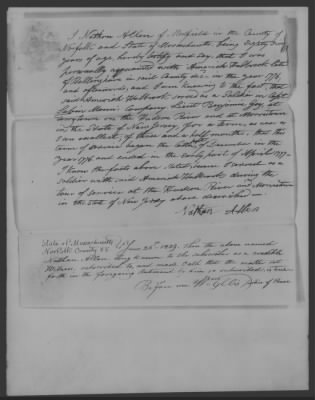 I Nathan Allen of Medfield in the County of
Norfolk and State of Massachusetts, being eighty
years of age, hereby certify and say, that I was
personally acquainted with Amariah Holbrook late
of Bellingham in said County dec. in the year 1776
and afterwards, and I am knowing to the fact, that
said Amariah Holbrook served as a Soldier in Capt.
Company Lieut. Benjamin
on the Hudson River and at Morristown
in the State of New Jersey for a term, as near as
I can recollect, of three and a half months, that the
term of service began the of December in the
Year 1776 and ended in the early part of April 1777.
I know the facts above stated, because I served as
soldier with said Amariah Holbrook during the
tour of service at the Hudson River and Morristown
in the State of New Jersey above described.
Nathan Allen
State of Massachusetts
Norfolk County SS 25th 1839. Then the above named
Nathan Allen, long known to the subscriber as a credible
Witness, subscribed to, and made Oath that the matter set
forth in the foregoing Statement by him so subscribed, is true.
Before me Justice of Peace